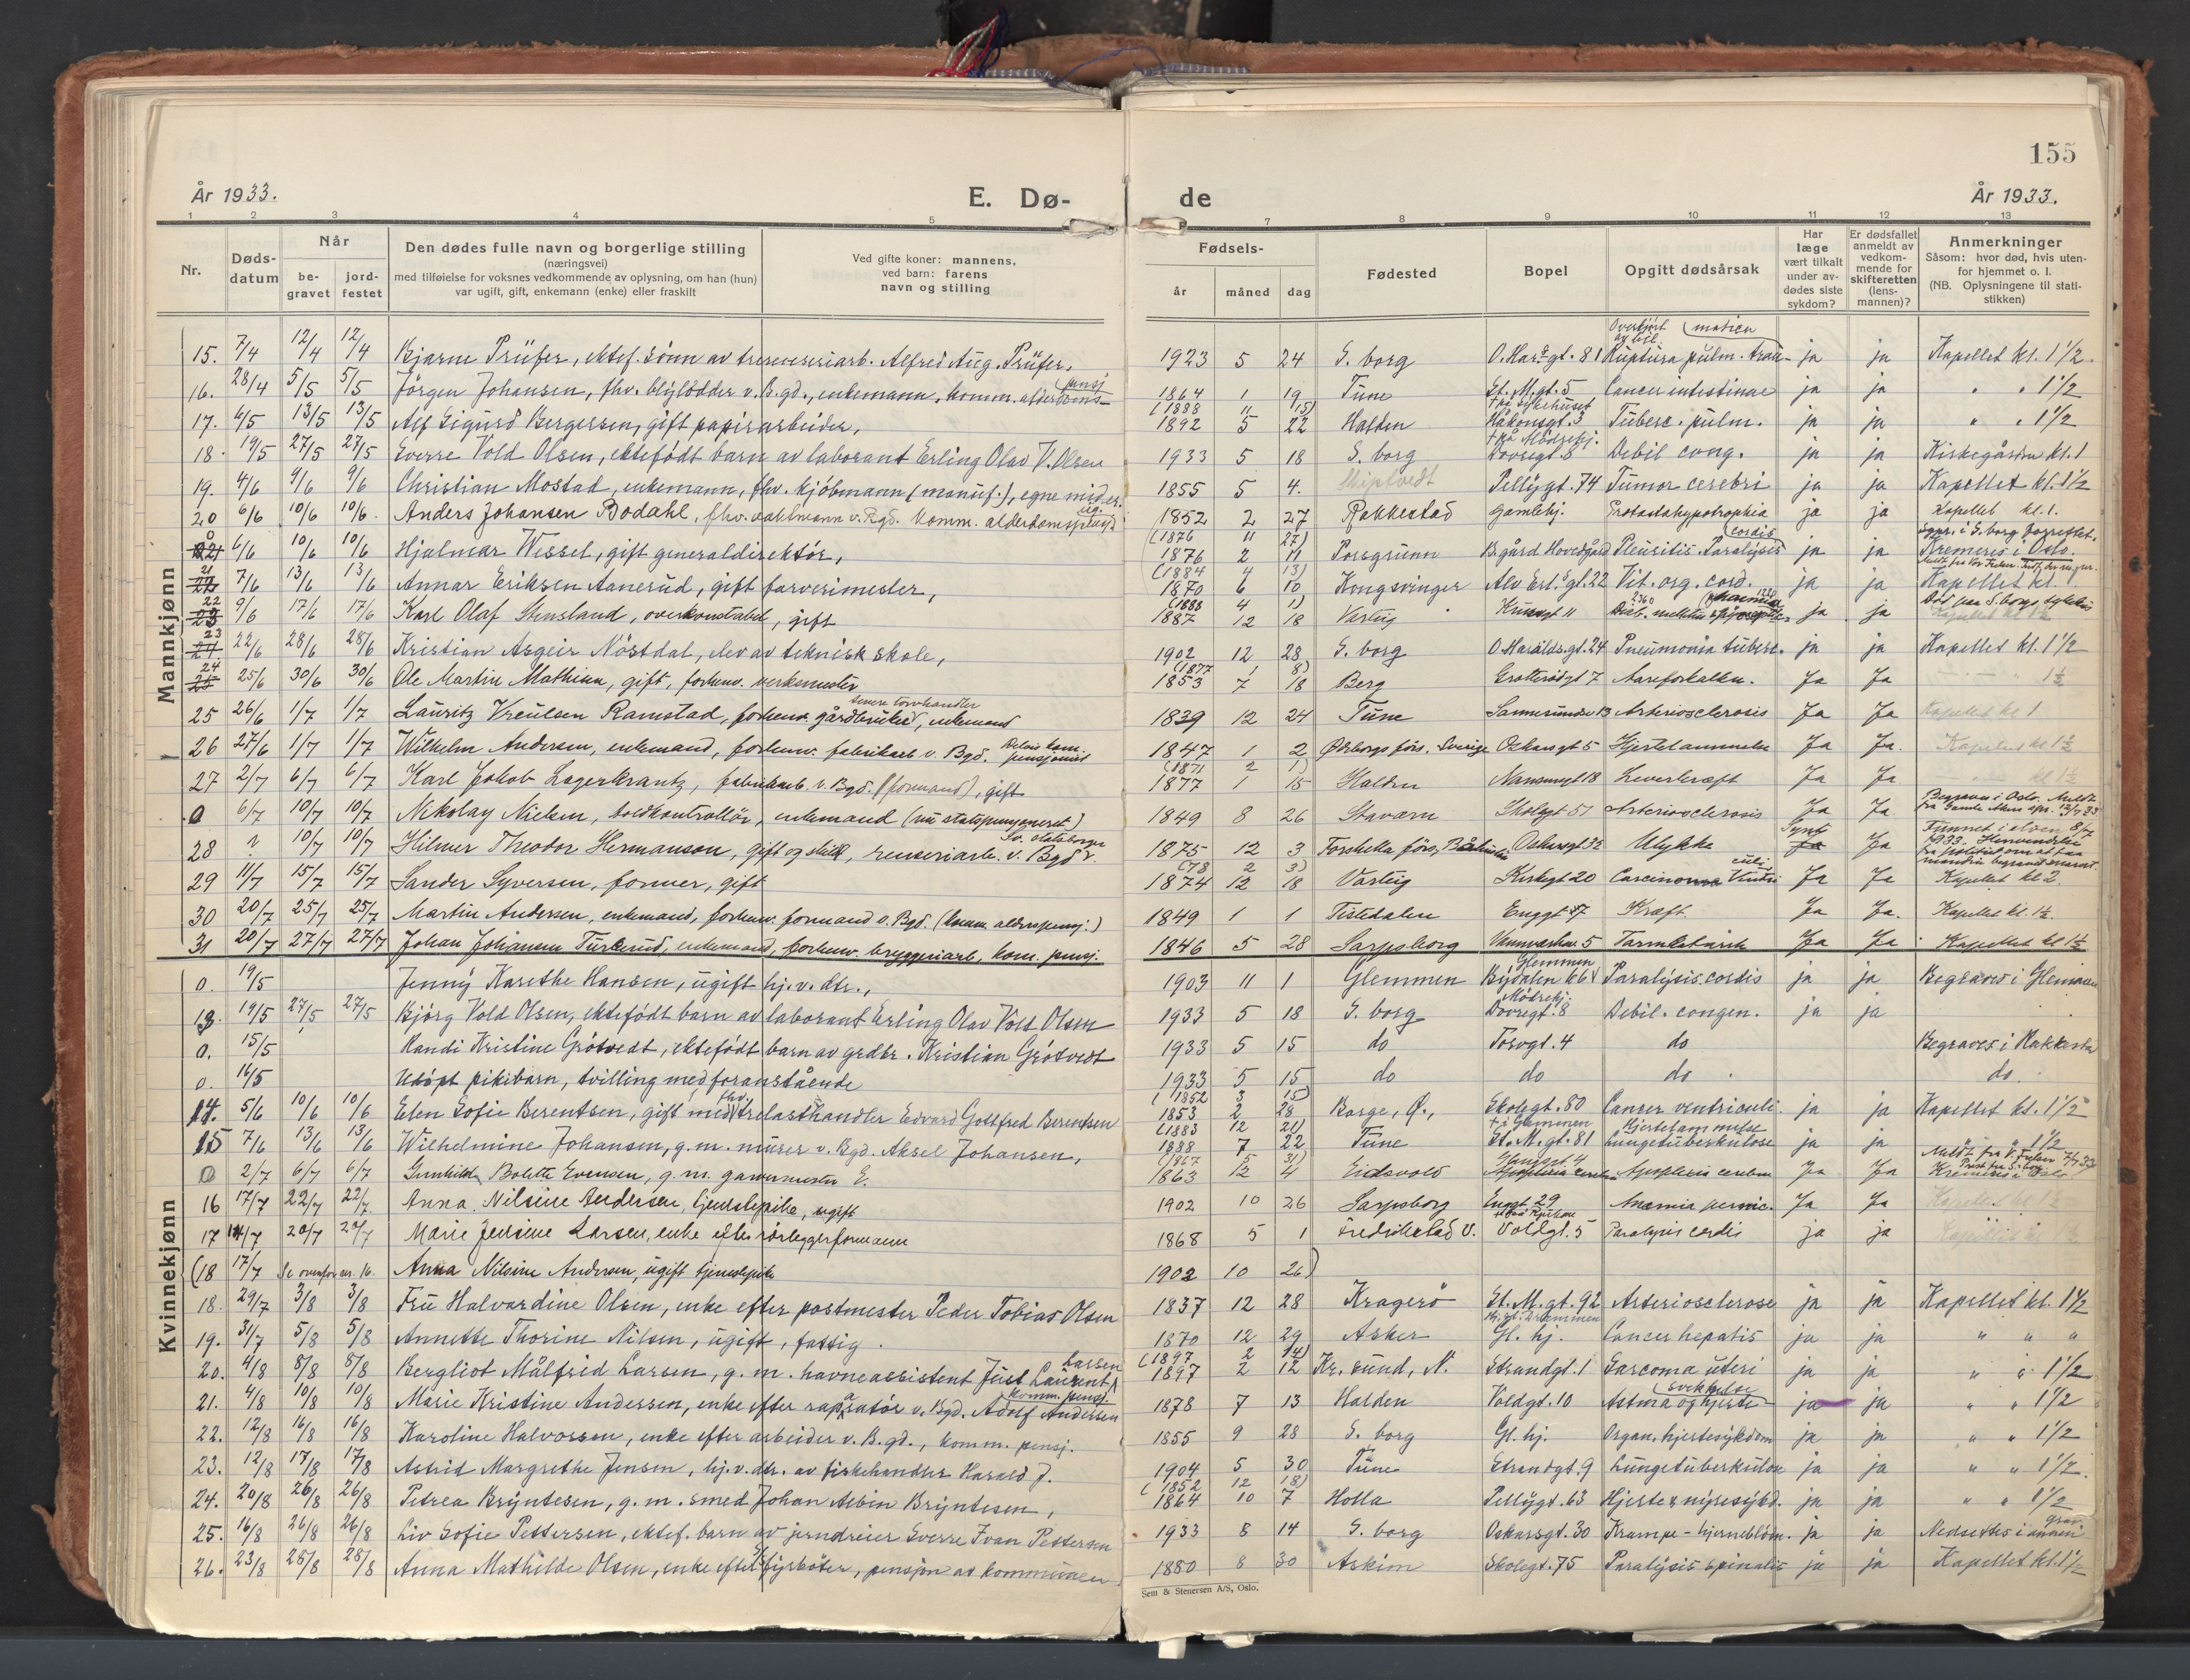 155
År 1933. E. Dø- de År 1933.
1 2 3 4 5 7 8 9 10 11 12 13
Nr. Døds-datum Når be-gravet jord-festet Den dødes fulle navn og borgerlige stilling (næringsvei) med tilføielse for voksnes vedkommende av oplysning, om han (hun) var ugift, gift, enkemann (enke) eller fraskilt Ved gifte koner: mannens, ved barn: farens navn og stilling Fødsels- år måned dag Fødested Bopel Opgitt dødsårsak Har læge vært tilkalt under av-dødes siste sykdom? Er dødsfallet anmeldt av vedkom-mende for skifteretten (lens-mannen)? Anmerkninger Såsom: hvor død, hvis uten-for hjemmet o. l. (NB. Oplysningene til stati-stikken)
Mannkjønn
15. 7/4 12/4 12/4 Bjarne Prüfer, ektef. sønn av renseriarb. Alfred Aug. Prüfer. 1923 5 24 S. borg O. Har. gt. 81 Overkjørt av bil Ruptura pulm. traumatica ja ja Kapellet kl. 1 1/2
16. 28/4 5/5 5/5 Jörgen Johansen, fhv. blylodder v. B.gd., enkemann, komm. alderspensj. 1864 1 19 Tune St. M. gt. 5 Cancer intestinae ja ja " " 1 1/2
17. 6/5 13/5 13/5 Alf Sigurd Bergersen, gift papirarbeider, (1888 11 15) 1892 5 22 Halden † på sykehuset Håkonsgt. 3 Tuberc. pulm. ja ja " " 1 1/2
18. 19/5 27/5 27/5 Sverre Vold Olsen, ektefødt barn av laborant Erling Olav V. Olsen 1933 5 18 S. borg † på Mödrehj. Dovregt 8 Debil cong. ja ja Kirkegården kl. 1
19. 4/6 9/6 9/6 Christian Mostad, enkemann, fhv. kjöbmann (manuf.), egne midler. 1855 5 4. Skiptvedt Pellygt. 74 Tumor cerebri ja ja Kapellet kl. 1 1/2
20 6/6 10/6 10/6. Anders Johansen Bodahl, fhv. v. Bgd. komm. alderdomspensj. 1852 2 27 Rakkestad Gamlehj. Prostatahypotrophia ja ja Kapellet kl. 1.
0 21 6/6 10/6 10/6 Hjalmar Wessel, gift generaldirektör, (1876 11 27) 1876 2 11 Porsgrunn B.gård Hovedgård Pleuritis. Paralysis cordis ja ja Kremeres i Oslo.
21 22 7/6 13/6 13/6 Annar Eriksen Aanerud, gift farverimester, (1884 4 13) 1870 6 10 Kongsvinger Alv Erl. s gt. 22 Vit. org. cord. ja ja Kapellet kl. 1
22 23 9/6 17/6 17/6 Karl Olaf Stensland, overkonstabel, gift (1888 4 1) 1887 12 18 Varteig Krusegt 11 ja ja
23 24 22/6 28/6 28/6 Kristian Asgeir Nöstdal, elev av teknisk skole, 1902 12 28 S. borg O. Haralds. gt. 24 Pneumonia tuberc. ja ja Kapellet kl. 1 1/2
24 25 25/6 30/6 30/6 Ole Martin Mathisen, gift, forhenv. verksmester (1877 1 8) 1853 7 18 Berg Grotterødgt 7 Aareforkalkn. Ja Ja 1 1/2
25 26/6 1/7 1/7 Lauritz Ramstad, forhenv. gårdbruker, senere torvhandler, enkemand 1839 12 24 Tune Sannesunds 13 Arteriosclerosis Ja Ja Kapellet kl 1
26 27/6 1/7 1/7 Wilhelm Andersen, enkemand, forhenv. fabrikarb. v. Bgd. Delvis kom. pensjonist 1847 1 2 Sverige Oskarsgt 5 Hjertelammelse Ja Ja. Kapellet kl 1 1/2
27 2/7 6/7 6/7 Karl Jakob Lagerkrantz, fabrikarb. v. Bgd. (formand), gift (1871 2 1) 1877 1 15 Halden Nansensgt 18 Leverkræft Ja Ja kl 1 1/2
0 6/7 10/7 10/7 Nikolay Nielsen, toldkontrollör, enkemand (nu statspensjoneret) 1849 8 26 Stavern Skolegt 51 Arteriosclerosis Ja Ja
28 ? 10/7 10/7 Hilmer Theodor Hermanson, gift og skilt, renseriarb. v. Bgd. Sv. statsborger 1875 12 3 Oskarsgt 32 Ulykke Ja Funnet i elven 8/7 1933.
29 11/7 15/7 15/7 Sander Syversen, former, gift (78 2 3) 1874 12 18 Varteig Kirkegt 20 Carcinoma Ventriculi Ja Ja Kapellet kl 2.
30 20/7 25/7 25/7 Martin Andersen, enkemand, forhenv. formand v. Bgd. (komm. alderspensj.) 1849 1 1 Tistedalen Enggt 37 Kræft Ja Ja. Kapellet kl. 1 1/2
31 20/7 27/7 27/7 Johan Johansen Turterud, enkemand, forhenv. bryggeriarb., kom. pensj. 1846 5 28 Sarpsborg 5 Ja Ja Kapellet kl 1 1/2
Kvinnekjønn
0. 19/5 Jenny Karethe Hansen, ugift hj. v. dtr., 1903 11 1 Glemmen Bydalen 66 Glemmen Paralysis cordis ja ja Begraves i Glemmen
13. 19/5 27/5 27/5 Bjørg Vold Olsen, ektefødt barn av laborant Erling Olav Vold Olsen 1933 5 18 S. borg Mödrehj. Dovregt. 8 Debil. congen. ja ja
0. 15/5 Randi Kristine Grötvedt, ektefødt barn av grdbr. Kristian Grötvedt 1933 5 15 do Torvgt. 4 do Begraves i Rakkesta
0. 16/5 Udöpt pikebarn, tvilling med foranstående 1933 5 15 do do do do.
14. 5/6 10/6 10/6 Elen Sofie Berentsen, gift med fhv. trelasthandler Edvard Gottfred Berentsen (1852 3 15) 1853 2 28 Borge, Ø., Skolegt. 80 Cancer ventriculi ja ja Kapellet kl. 1 1/2
15 7/6 13/6 13/6 Wilhelmine Johansen, g. m. murer v. Bgd. Aksel Johansen, (1883 12 21) 1888 7 22 Tune † i Glemmen St. M. gt. 81 Hjertelammelse Lungetuberkulose ja ja " 1 1/2
0 2/7 6/7 6/7 Gunhild Bolette Evensen, g. m. garvermester E. (1867 5 31) 1863 12 4 Eidsvold Apoplexia cerebri Ja Ja Kremeres i Oslo
16 17/7 22/7 22/7 Anna Nilsine Andersen, tjenestepike, ugift 1902 10 26 Sarpsborg Enggt. 29 Anæmia pernic. Ja Ja Kapellet kl 1 1/2
17 14/7 20/7 20/7 Marie Jensine Larsen, enke efter rörleggerformann 1868 5 1 Fredrikstad V. Voldgt. 5 Paralysis cordis ja ja
(18 17/7 Se ovenfor nr. 16. Anna Nilsine Andersen, ugift tjenestepike 1902 10 26)
18. 29/7 3/8 3/8 Fru Halvardine Olsen, enke efter postmester Peder Tobias Olsen 1837 12 28 Kragerö St. M. gt. 92 Arteriosclerose ja ja Kapellet kl. 1 1/2
19. 31/7 5/8 5/8 Annette Thorine Nilsen, ugift, fattig. 1870 12 29 Asker Gl. hj. Cancer hepatis ja ja " " "
20. 4/8 8/8 8/8 Bergliot Målfrid Larsen, g. m. havneassistent Just Laurent Larsen (1897 2 14) 1897 2 12 Kr. sund, N. Strandgt. 1 Sarcoma uteri ja ja " " 1 1/2
21. 4/8 10/8 10/8 Marie Kristine Andersen, enke efter reparatör v. Bgd. Adolf Andersen komm. pensj. 1878 7 13 Halden Voldgt. 10 Astma og hjerte svekkelse ja ja " " 1 1/2
22. 12/8 16/8 16/8 Karoline Halvorsen, enke efter arbeider v. B.gd., komm. pensj. 1855 9 28 S. borg Gl. hj. Organ. hjertesykdom ja ja " " 1 1/2
23. 12/8 17/8 17/8 Astrid Margrethe Jensen, hj. v. dtr. av fiskehandler Harald J. 1904 5 30 Tune Strandgt. 9 Lungetuberkulose ja ja " " 1 1/2.
24. 20/8 26/8 26/8 Petrea Bryntesen, g. m. smed Johan Albin Bryntesen, (1852 12 18) 1864 10 7 Holla Pellygt. 63 Hjerte & nyresykd. ja ja " " 1 1/2
25. 16/8 26/8 26/8 Liv Sofie Pettersen, ektef. barn av jerndreier Sverre Ivan Pettersen 1933 8 14 S. borg Oskarsgt. 30 Krampe - hjerneblödn. ja ja Nedsettes i grav
26. 23/8 28/8 28/8 Anna Mathilde Olsen, enke efter fyrböter, pensjon av kommunen. 1880 8 30 Askim Skolegt. 75 Paralysis spinalis ja ja Kapellet kl. 1 1/2
Sem & Stenersen A/S, Oslo.